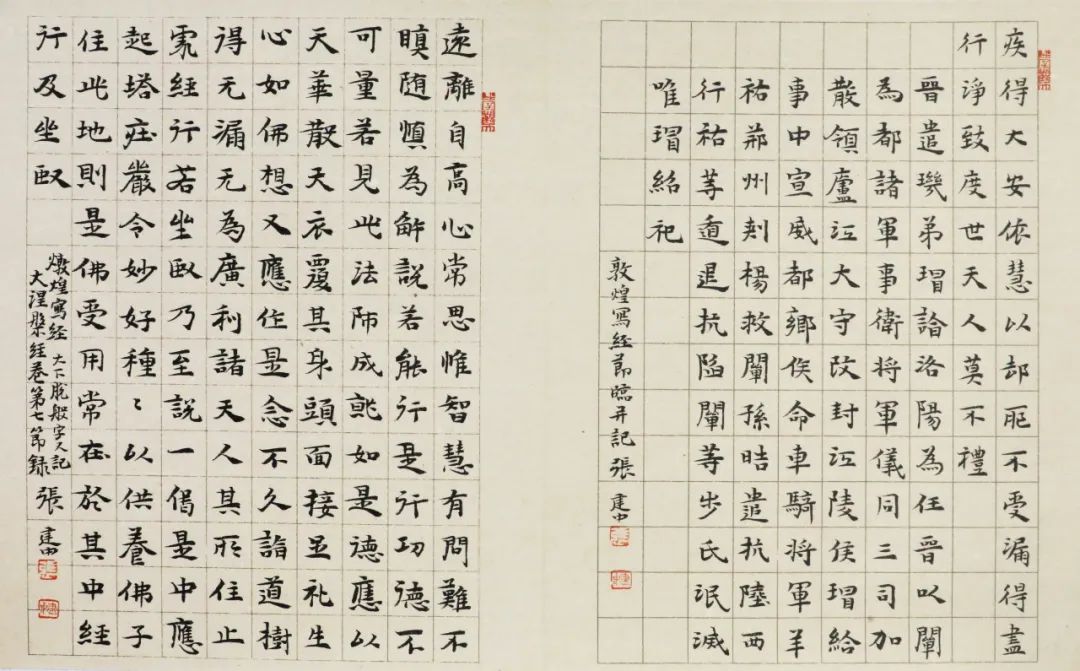 疾得大安依慧以却厄不受漏得盡
行淨致度世天人莫不禮
晉遣璣弟瑁詣洛陽為任晉以闡
為都諸軍事衛將軍儀同三司加
散領廬江大守改封江陵侯瑁給
事中宣威都鄉侯命車騎將軍羊
祜荊州刾楊救闡孫晧遣抗陸西
行祜等遁退抗陷闡等步氏泯滅
唯瑁紹祀
敦煌寫經節臨并記 張建中
遠離自高心常思惟智慧有問難不
瞋随慎為解說若能行是行功德不
可量若見此法師成就如是德應以
天華散天衣覆其身頭面接足礼生
心如佛想又應作是念不久詣道樹
得无漏无為廣利諸天人其所住止
處經行若坐臥乃至說一偈是中應
起塔莊嚴令妙好種〻以供養佛子
住此地則是佛受用常在於其中經
行及坐臥
燉煌寫經 大下脫般字人記
大涅槃經卷第七節録 張建中